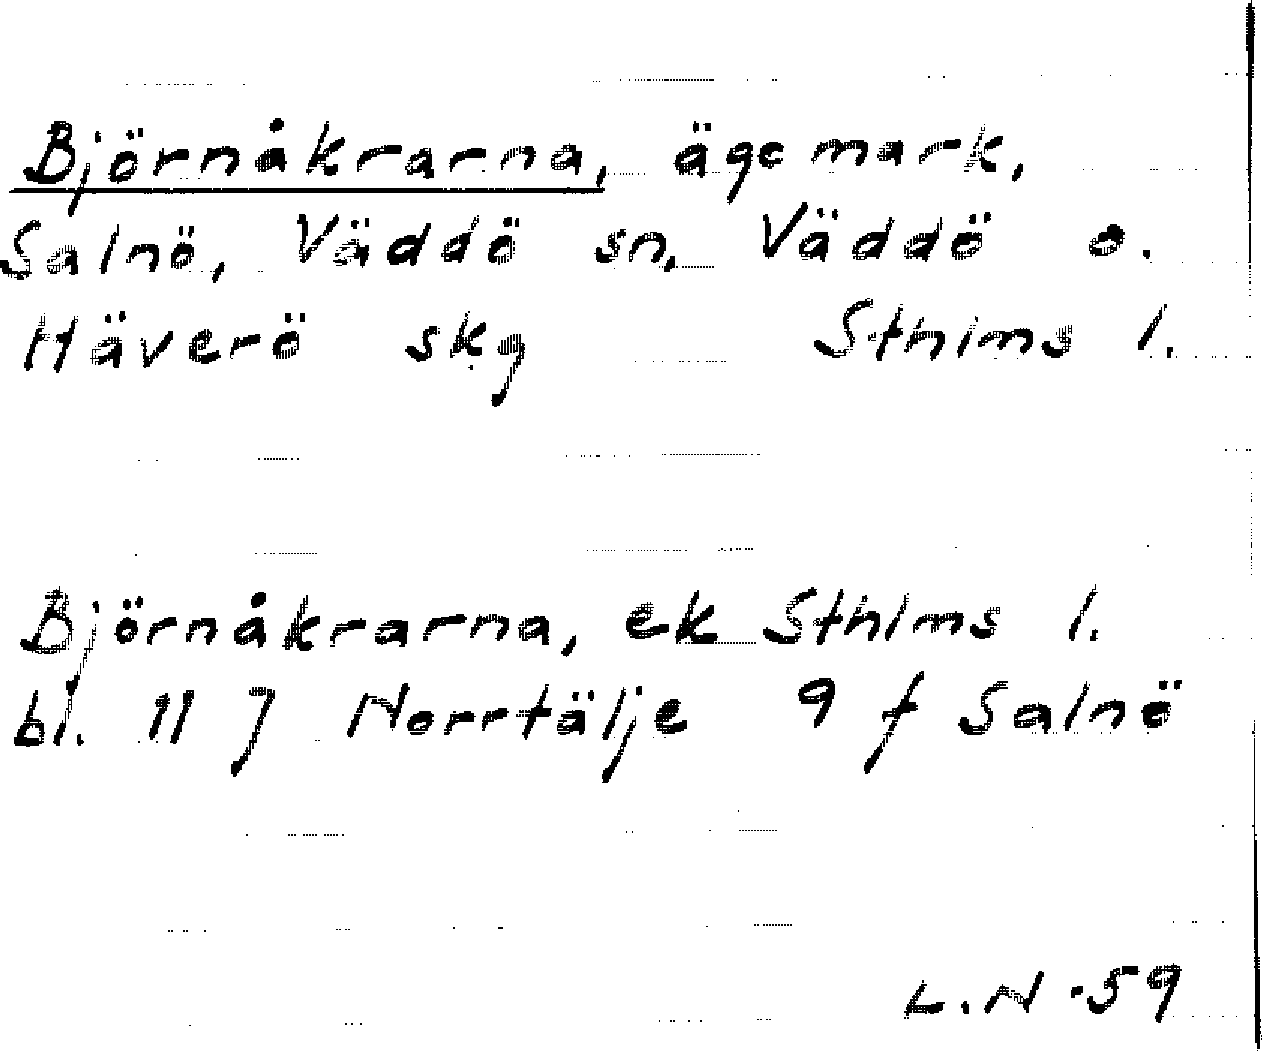 Björnåkrarna, ägomark,
Salnö, Väddö sn, Väddö o.
Häverö skg Sthlms l.
Björnåkrarna, ek Sthlms l.
bl. 11 J Norrtälje 9 f Salnö
L.N -59